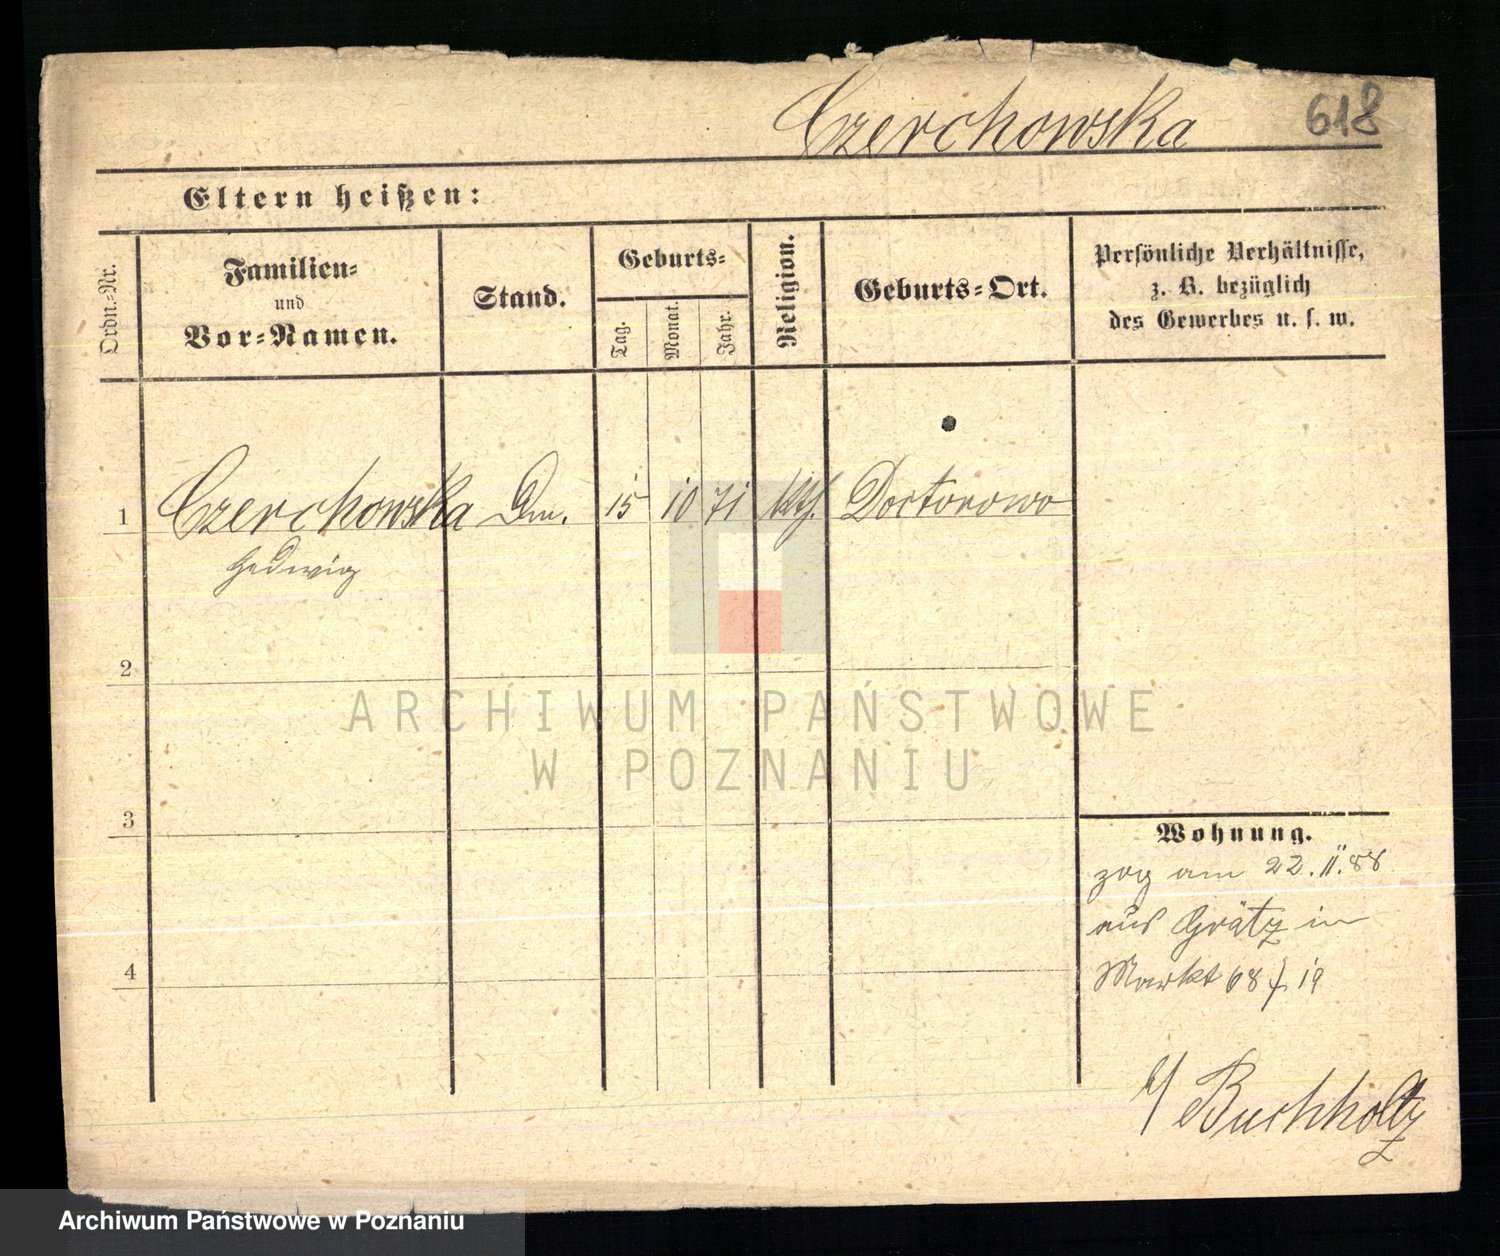 Czerchowska 618
Eltern heißen:
Ordn.-Nr.
Familien-
und
Vor-Namen.
Stand.
Geburts-
Tag.
Monat.
Jahr.
Religion.
Geburts-Ort.
Persönliche Verhältnisse,
z. B. bezüglich
des Gewerbes u. s. w.
1 Czerchowska 15 10 71 kth. Doctorowo
Hedwig
2
3
4
Wohnung.
zog am 22. II. 88
aus Grätz in
Markt 68 19
b/ Buchholtz
ARCHIWUM PAŃSTWOWE
W POZNANIU
Archiwum Państwowe w Poznaniu